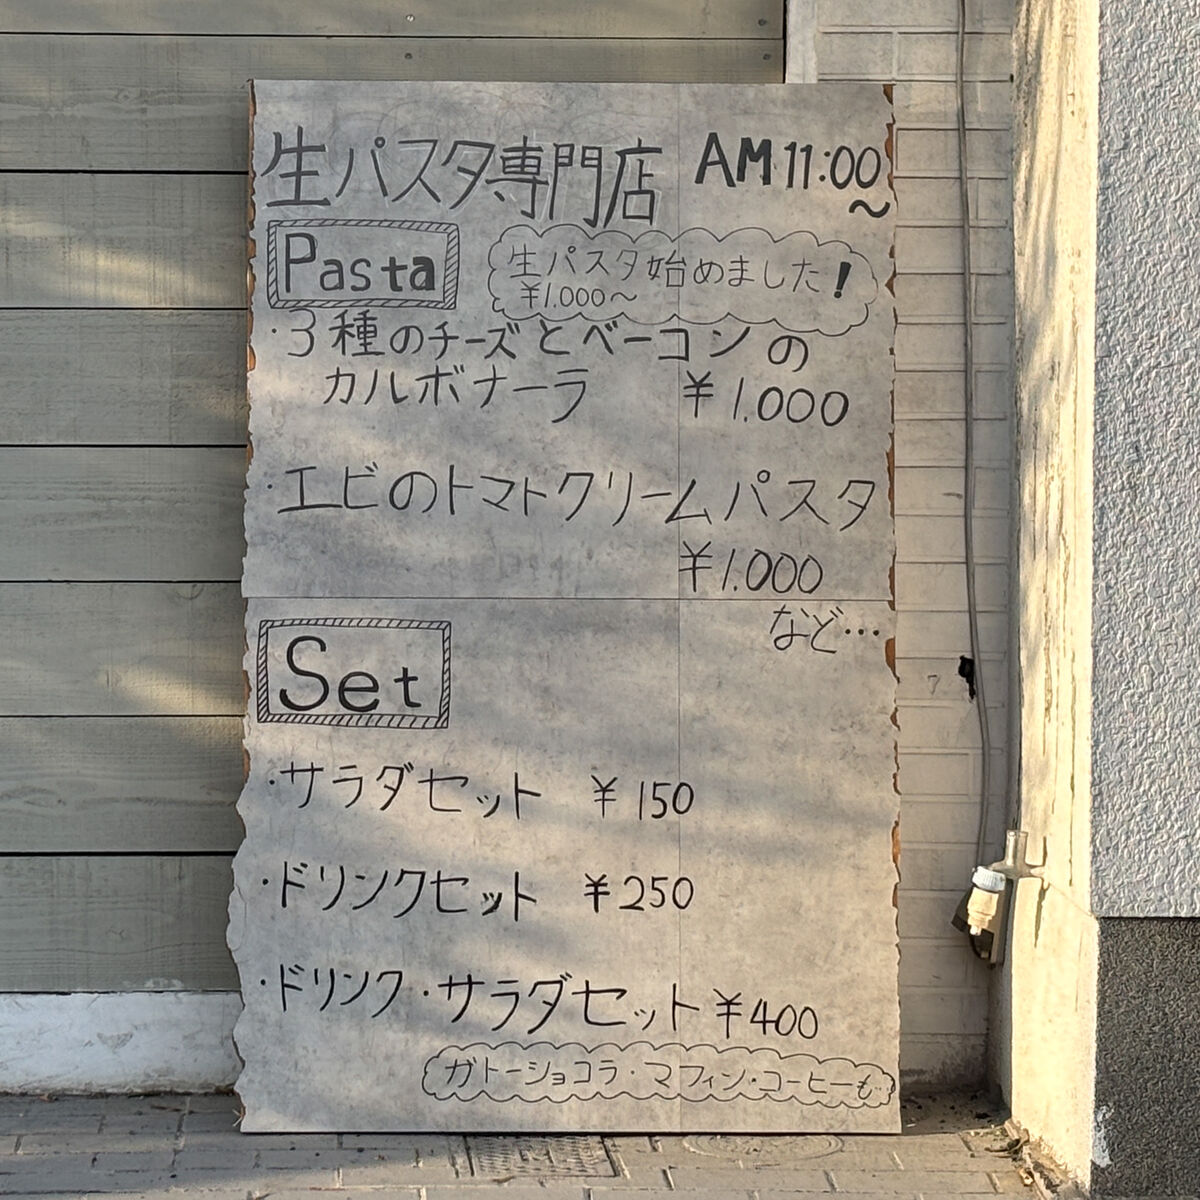 生パスタ専門店 AM 11:00~
Pasta
生パスタ始めました!
¥1.000~
・3種のチーズとベーコンの
カルボナーラ ¥1.000
・エビのトマトクリームパスタ
¥1.000
など…
Set
・サラダセット ¥150
・ドリンクセット ¥250
・ドリンク・サラダセット ¥400
ガトーショコラ・マフィン・コーヒーも…